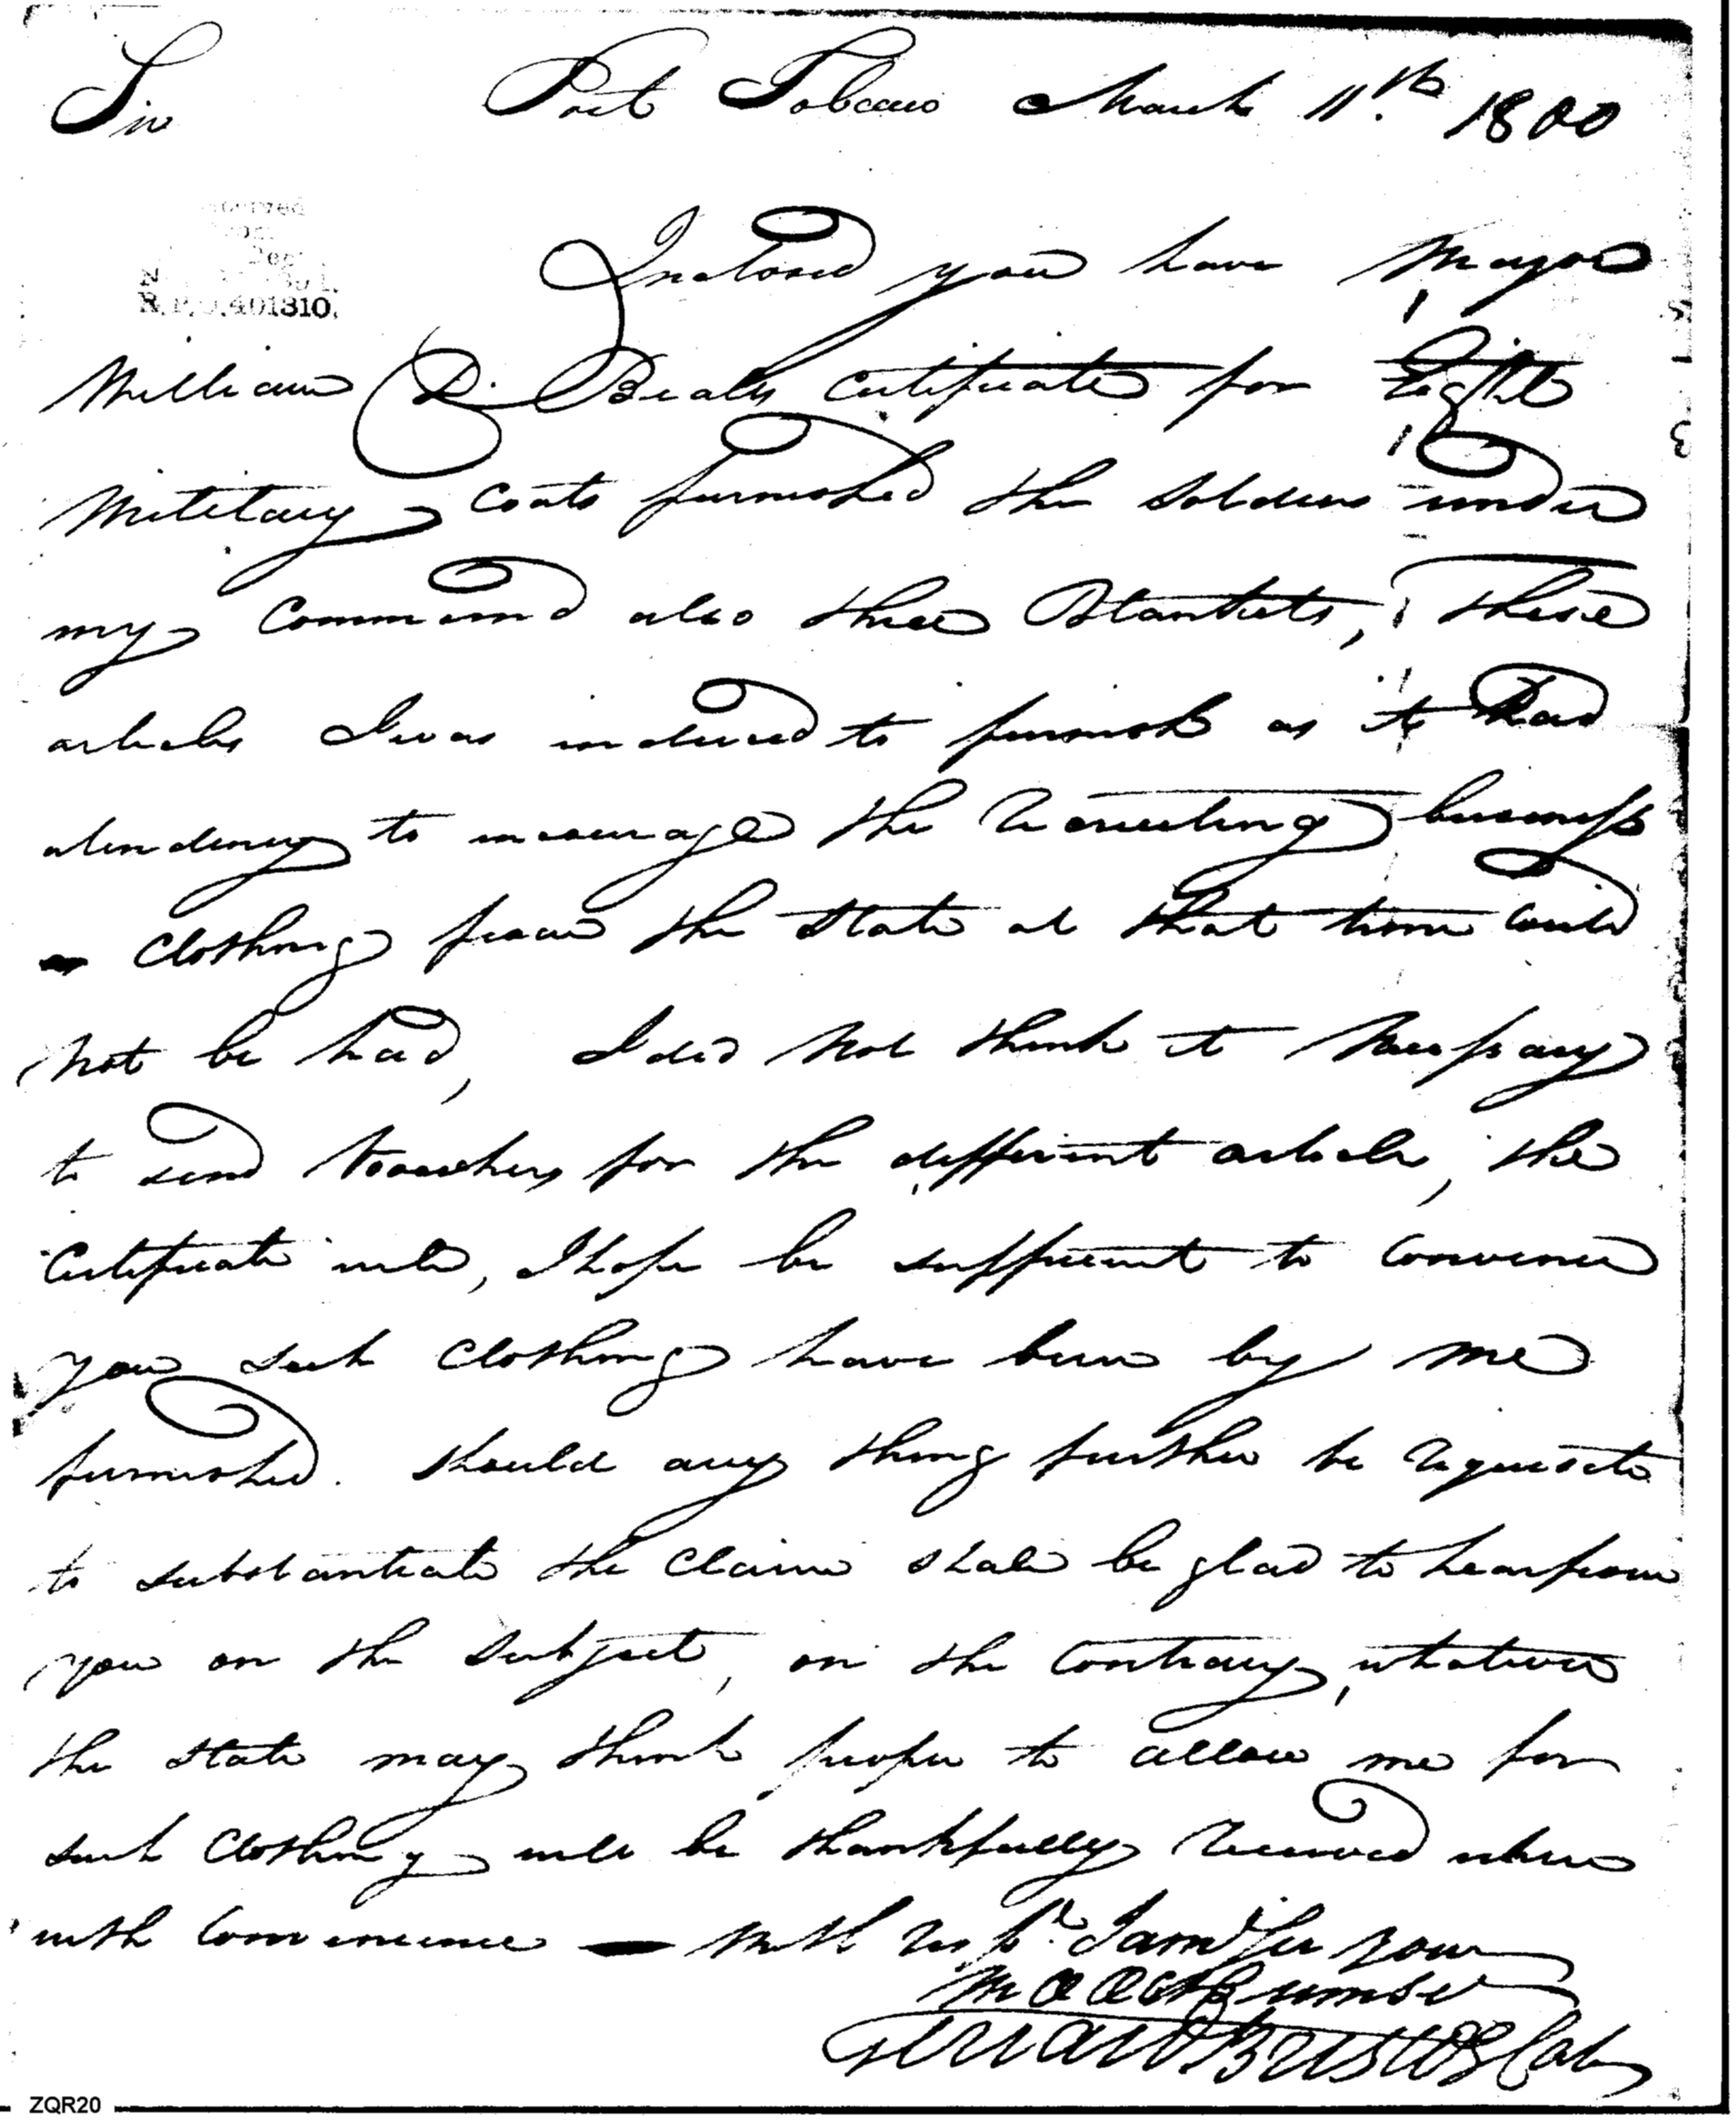 Sir Port Tobacco March 11th. 1800
R.P.O. 401310.
Inclosed you have Major
William D. Bealls Certificate for Eight
Milititary Coats furnished the Soldiers under
my Command also three Blankets, These
articles I was induced to furnish as it had
atendency to incourage the recruiting business
Clothing from the State at that time could
not be had, I did not think it Necessary
to send Vouchers for the different article, the
Certificate will, I hope be sufficient to convince
you such Clothing have been by me
furnished. Should any thing further be requisite
to substantiate the Claim shall be glad to hear from
you on the Subject, on the Contrary, whatever
the State may think proper to allow me for
such Clothing will be thankfully received when
with Convenience — with respt. I am Sir your
most Obt Humbl Servt
ZQR20